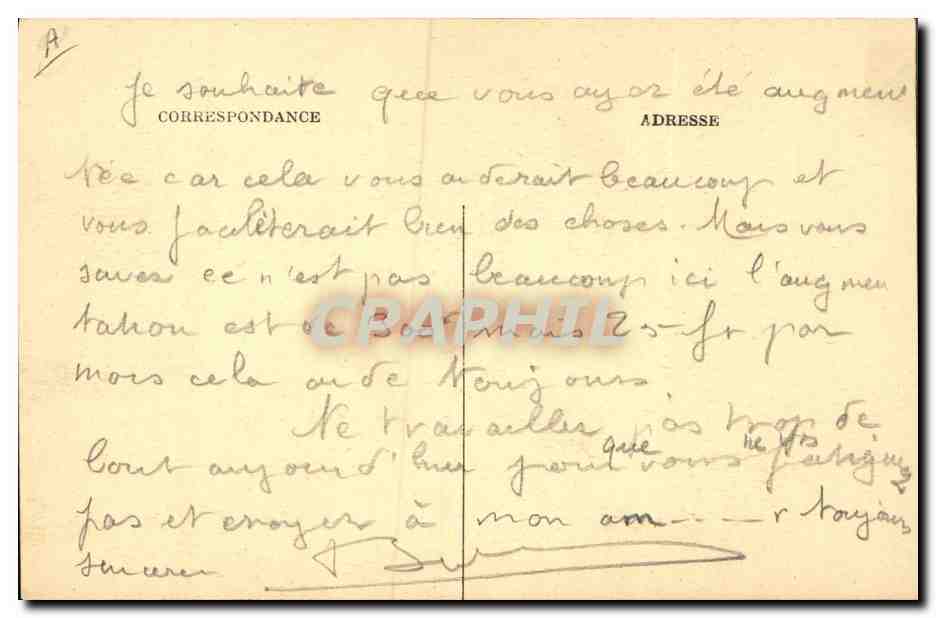 A
Je souhaite que vous ayez été augmen
CORRESPONDANCE ADRESSE
tée car cela vous aiderait beaucoup et
vous faciliterait bien des choses. Mais vous
savez ce n'est pas beaucoup ici l'augmen
tation est de mais 25 fr par
CPARHIL
mois cela aide toujours.
Ne travailler pas trop de
bout aujourd'hui pour que vous ne vs fatiguez
pas et croyez à mon am----r toujours
sincere